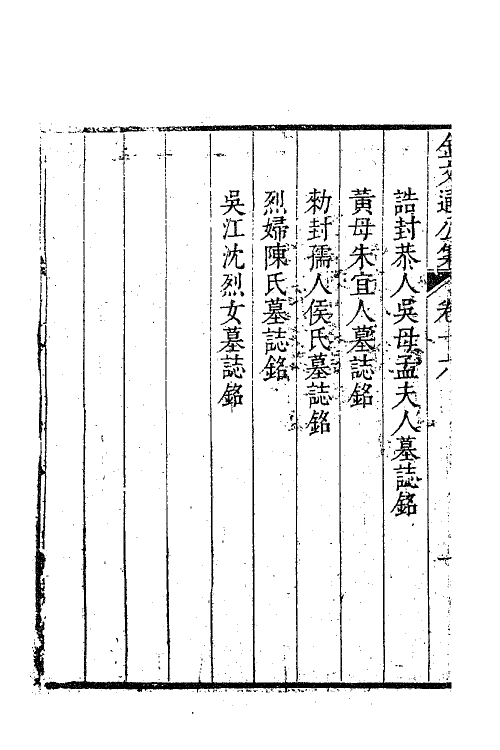 金文通公集 卷十六
誥封恭人吳母孟夫人墓誌銘
黃母朱宜人墓誌銘
勑封孺人侯氏墓誌銘
烈婦陳氏墓誌銘
吳江沈烈女墓誌銘